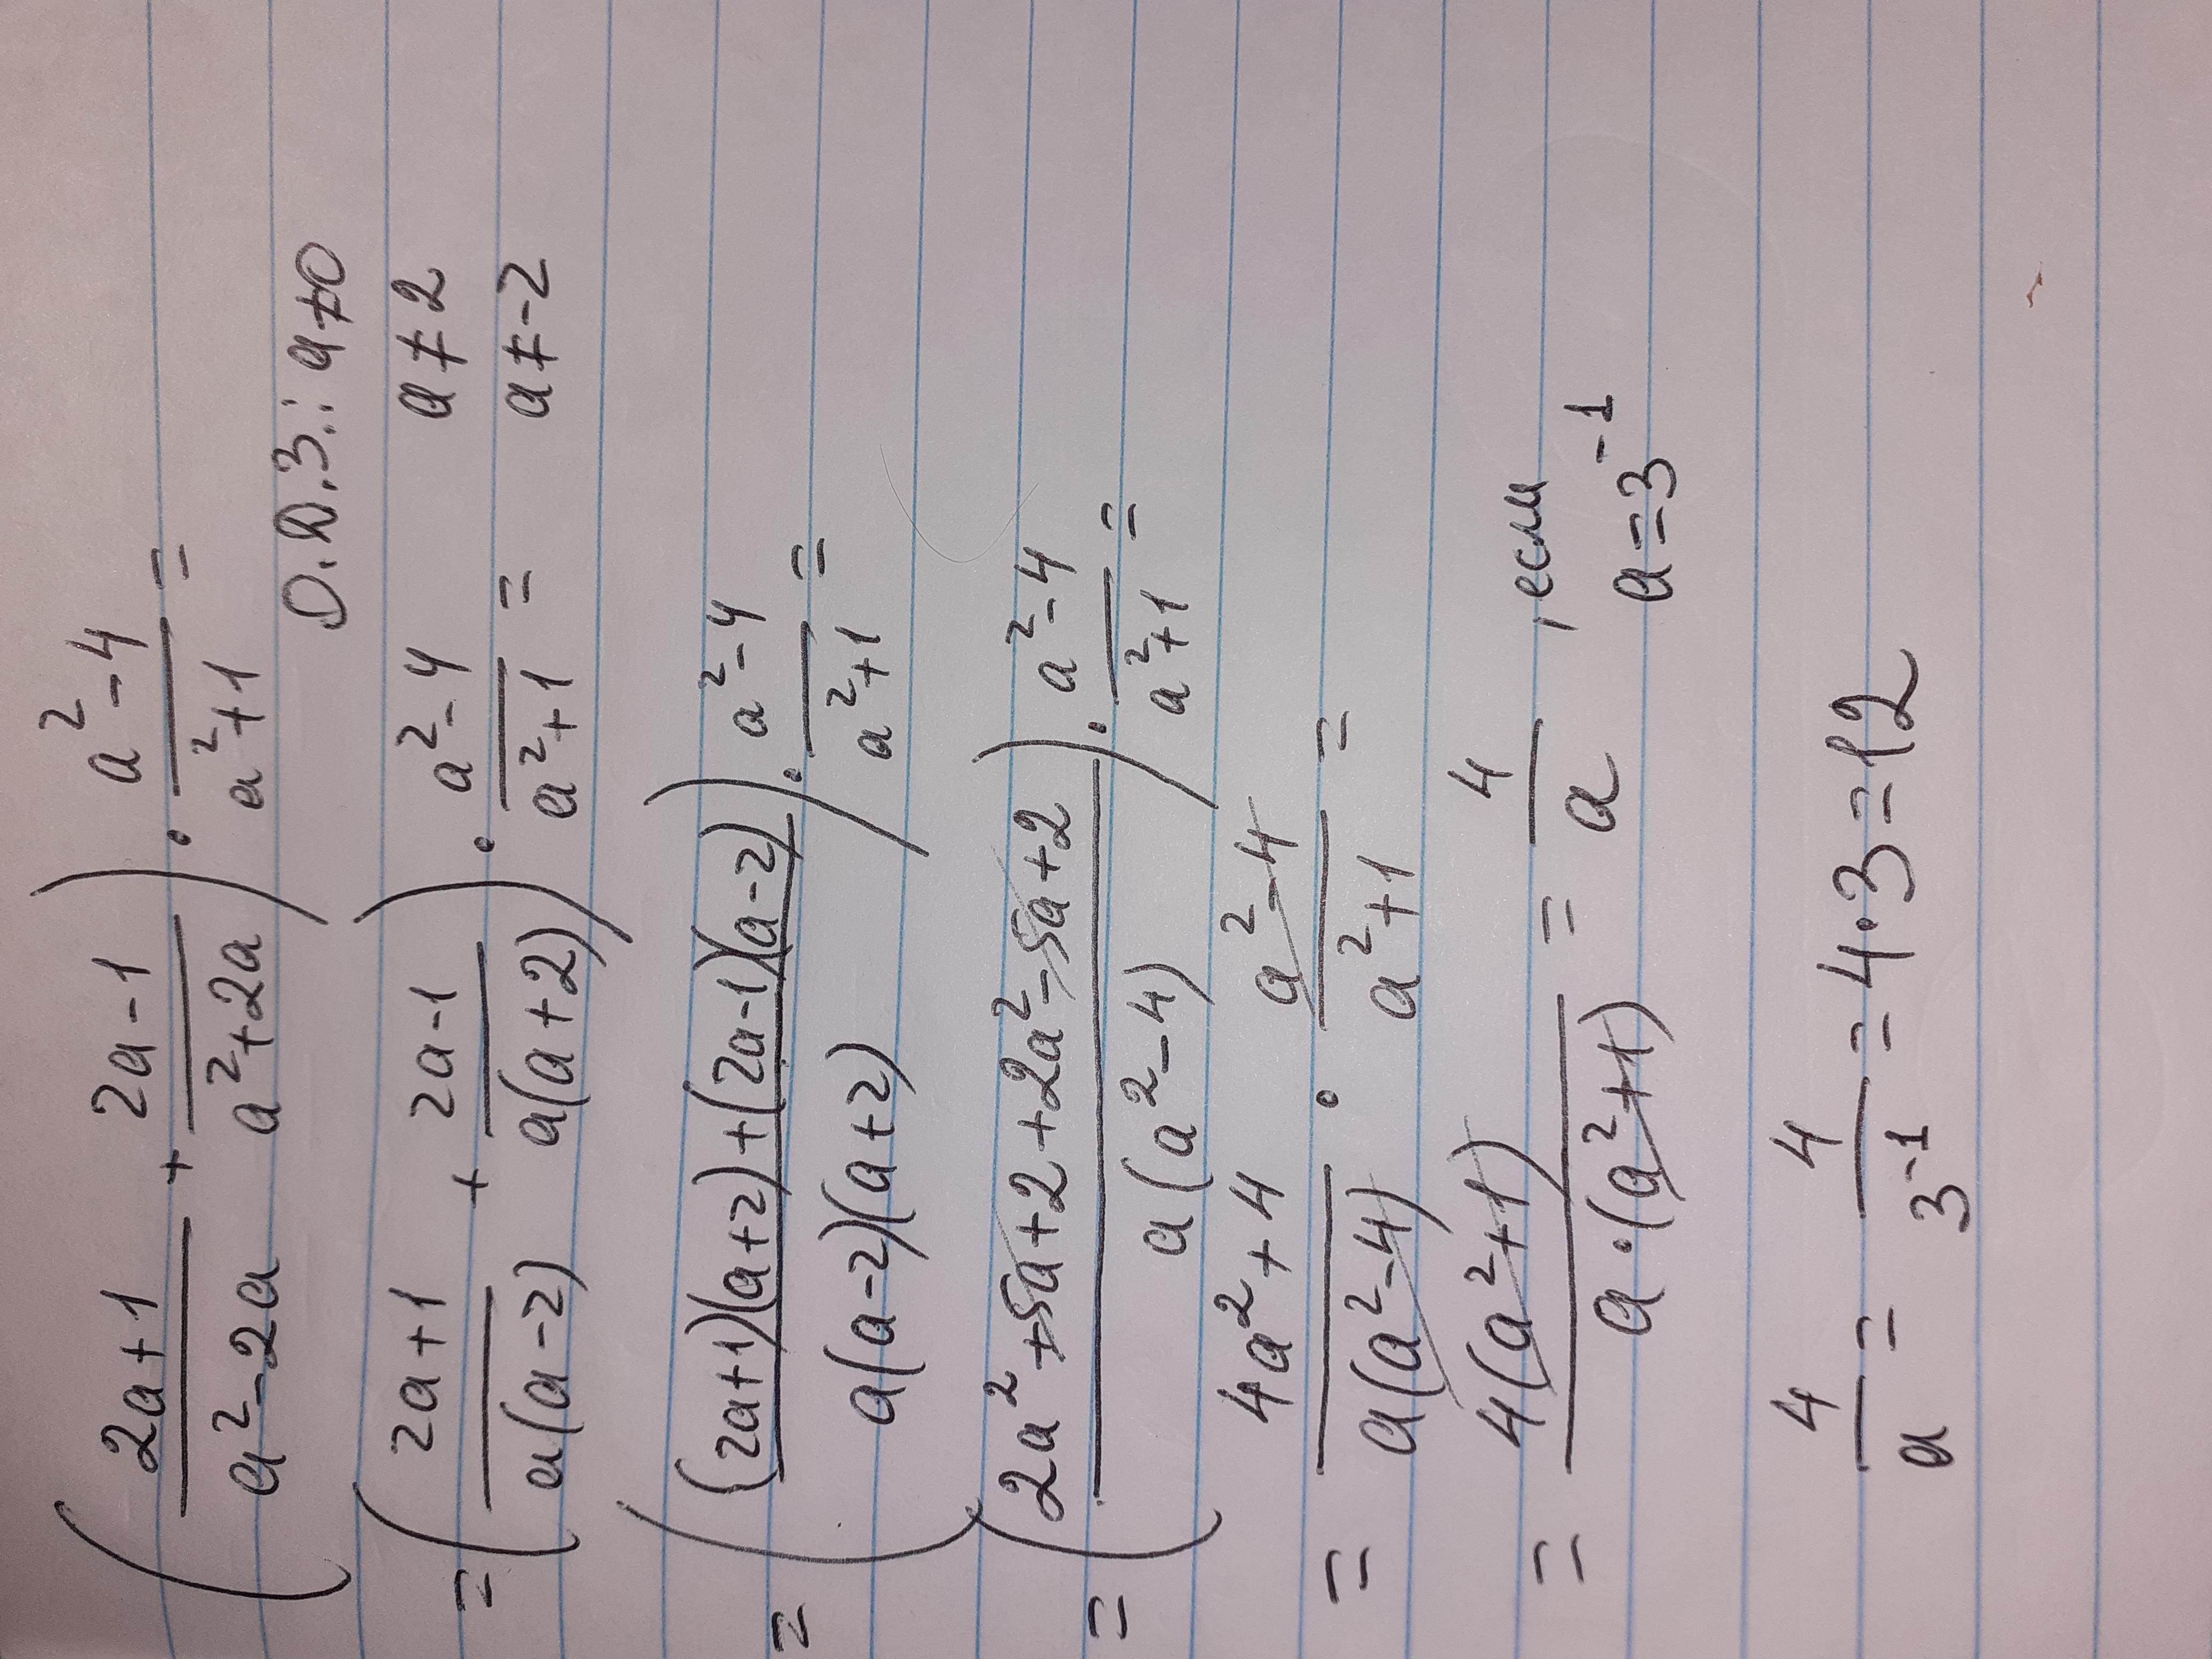 (2a+1/a²-2a + 2a-1/a²+2a) · a²-4/a²+1 =
О.Д.З.: a≠0
= (2a+1/a(a-2) + 2a-1/a(a+2)) · a²-4/a²+1 =
a≠2
a≠-2
= ((2a+1)(a+2)+(2a-1)(a-2)/a(a-2)(a+2)) · a²-4/a²+1 =
= (2a²+5a+2+2a²-5a+2/a(a²-4)) · a²-4/a²+1 =
= 4a²+4/a(a²-4) · a²-4/a²+1 =
= 4(a²+1)/a·(a²+1) = 4/a , если
a=3⁻¹
4/a = 4/3⁻¹ = 4·3=12